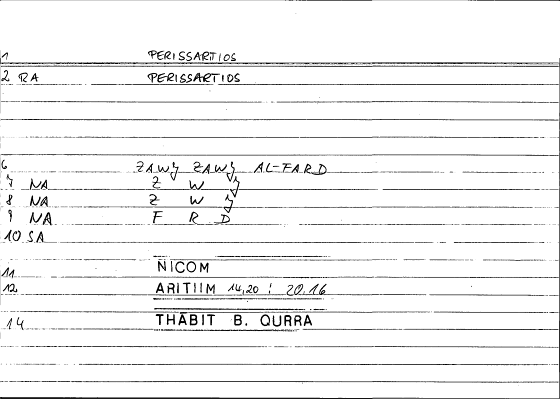 1 PERISSARTIOS
2 RA PERISSARTIOS
6 ZAWJ ZAWJ AL-FARD
7 NA Z W J
8 NA Z W J
9 NA F R D
10 SA
11 NICOM
12 ARITIIM 14,20 : 20.16
14 THĀBIT B. QURRA